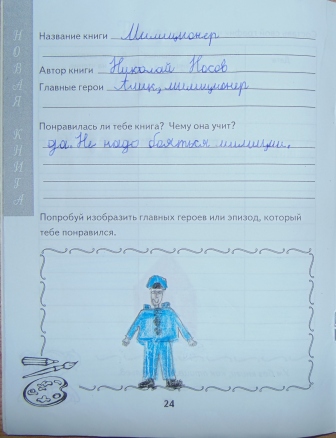 НОВАЯ КНИГА
Название книги Милиционер
Автор книги Николай Носов
Главные герои Алик, милиционер
Понравилась ли тебе книга? Чему она учит?
да. Не надо бояться милиции.
Попробуй изобразить главных героев или эпизод, который
тебе понравился.
24